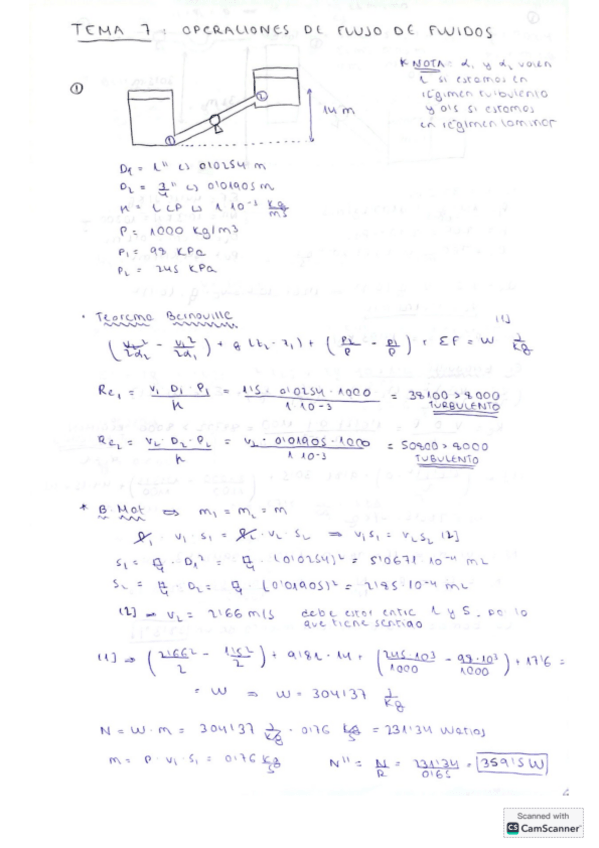 TEMA 7: OPERACIONES DE FLUJO DE FLUIDOS
* NOTA = α₁ y α₂ valen
1 si estamos en
régimen turbulento
y 0'5 si estamos
en régimen laminar
①
②
①
14 m
D₁ = 1" ↔ 0'0254 m
D₂ = 3/4" ↔ 0'01905 m
μ = 1 CP ↔ 1·10⁻³ kg/ms
ρ = 1000 kg/m3
P₁ = 98 KPa
P₂ = 245 KPa
· Teorema Bernouille
(1)
(v₂²/2α₂ - v₁²/2α₁) + g(z₂ - z₁) + (P₂/ρ - P₁/ρ) + ΣF = W J/kg
Re₁ = v₁·D₁·ρ₁/μ = 1'5·0'0254·1000/1·10⁻³ = 38100 > 8000 TURBULENTO
Re₂ = v₂·D₂·ρ₂/μ = v₂·0'01905·1000/1·10⁻³ = 50800 > 8000 TUBULENTO
* B. Mat ⇔ m₁ = m₂ = m
ρ₁·v₁·S₁ = ρ₂·v₂·S₂ ⇒ v₁S₁ = v₂S₂ [2]
S₁ = π/4·D₁² = π/4·(0'0254)² = 5'0671·10⁻⁴ m2
S₂ = π/4·D₂ = π/4·(0'01905)² = 2'85·10⁻⁴ m2
[2] → v₂ = 2'66 m/s debe estar entre 1 y 5, por lo
que tiene sentido
[1] ⇒ (2'66²/2 - 1'5²/2) + 9'81·14 + (245·10³/1000 - 98·10³/1000) + 17'6 =
= W ⇒ W = 304'37 J/kg
N = W·m = 304'37 J/kg · 0'76 kg/s = 231'34 Watios
m = ρ·v₁·S₁ = 0'76 kg/s N" = N/R = 231'34/0'65 = 359'5 W
Scanned with
CS CamScanner